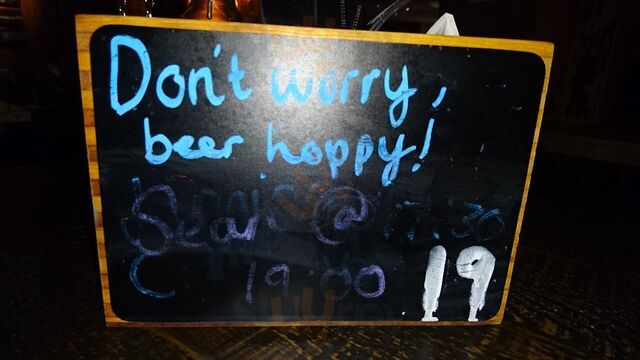 Don't worry,
beer hoppy!
Sean @ 17:30
19:00
19